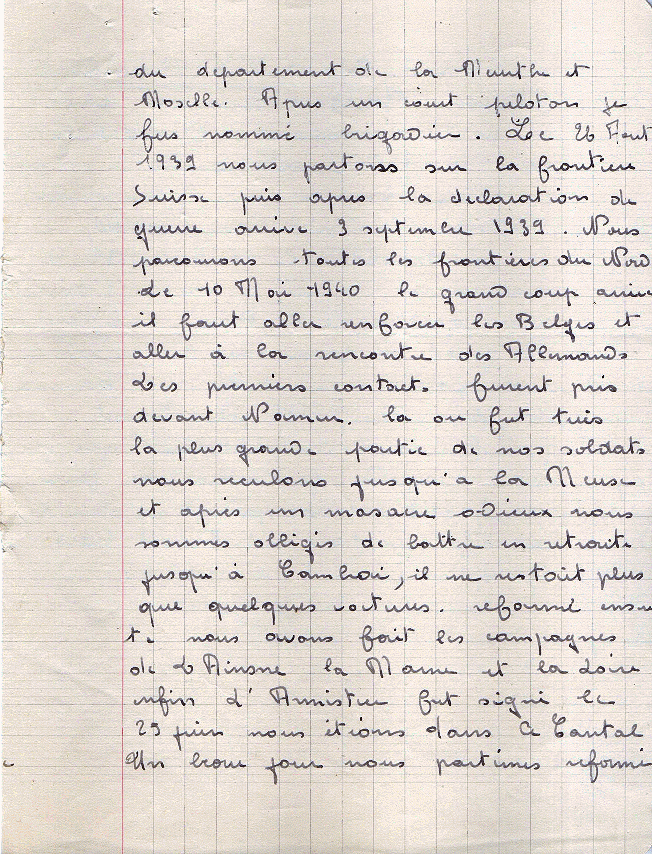 du departement de la Meurthe et
Moselle. Apres un court peloton je
fus nommé brigadier. Le 26 Aout
1939 nous partons sur la frontiere
Suisse puis apres la declaration de
guerre arrive 3 septembre 1939. Nous
parcourons toutes les frontières du Nord
Le 10 Mai 1940 le grand coup arrive
il faut aller renforcer les Belges et
aller à la rencontre des Allemands
Les premiers contacts furent pris
devant Namur. la ou fut tués
la plus grande partie de nos soldats
nous reculons jusqu'a la Meuse
et après un masacre odieux nous
sommes obligés de battre en retraite
jusqu'à Cambrai, il ne restait plus
que quelques voitures. reformé ensu
te nous avons fait les campagnes
de L'Ainsne la Marne et la Loire
enfin d'Armistice fut signé le
25 juin nous étions dans le Cantal
Un beau jour nous partimes reformé